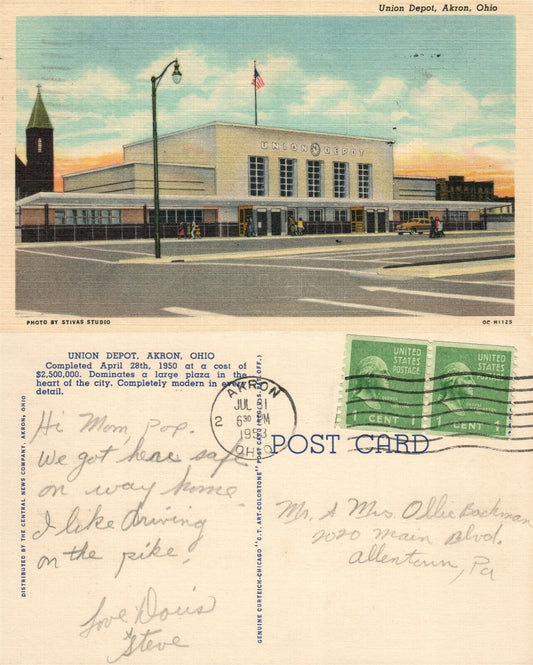 Union Depot, Akron, Ohio
UNION DEPOT
PHOTO BY STIVAS STUDIO
OC-H1125
UNION DEPOT, AKRON, OHIO
Completed April 28th, 1950 at a cost of
$2,500,000. Dominates a large plaza in the
heart of the city. Completely modern in every
detail.
DISTRIBUTED BY THE CENTRAL NEWS COMPANY, AKRON, OHIO
Hi Mom, Pop.
We got here safe
on way home.
I like driving
on the pike.
Love Doris
& Steve
GENUINE CURTEICH-CHICAGO "C.T. ART-COLORTONE" POST CARD (REG. U.S. PAT. OFF.)
AKRON
JUL
2
630 PM
OHIO
UNITED
STATES
POSTAGE
1 CENT
UNITED
STATES
POSTAGE
1 CENT 1
POST CARD
Mr. & Mrs. Ollie Backman
2020 Main Blvd.
Allentown, Pa